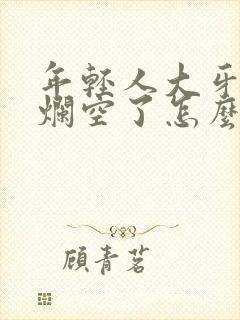 年輕人大牙
爛空了怎麼
顧青茗